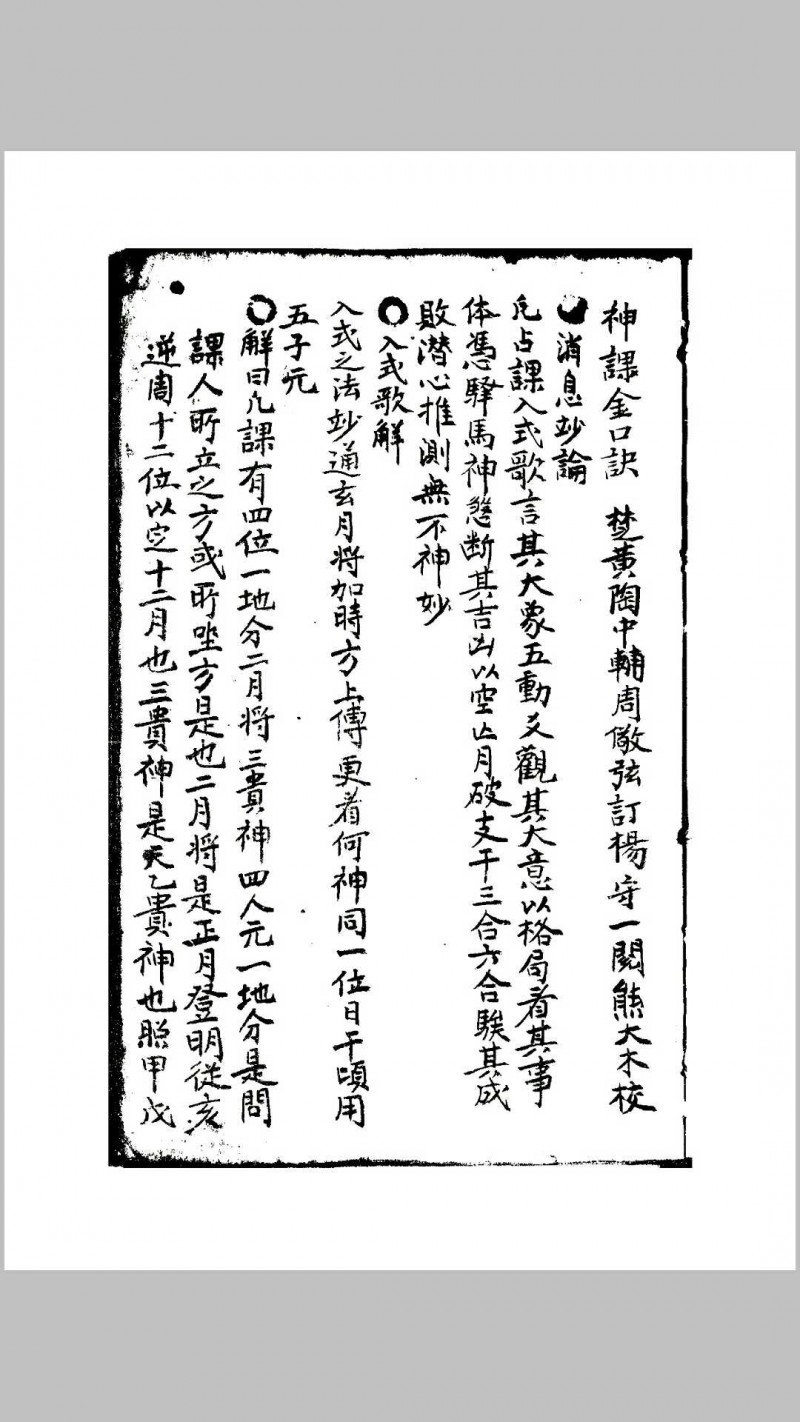 神課金口訣　楚黄陶中輔周儆弦訂楊守一閱熊大木校
消息妙論
凡占課入式歌言其大象五動爻觀其大意以格局看其事
体馮驛馬神煞断其吉凶以空亡月破支干三合六合騐其成
敗潜心推測無不神妙
入式歌解
入式之法妙通玄月将加時方上傳更看何神同一位日干頃用
五子元
解曰凡課有四位一地分二月将三貴神四人元一地分是問
課人所立之方或所坐方是也二月将是正月登明從亥
逆周十二位以定十二月也三貴神是天乙貴神也照甲戊